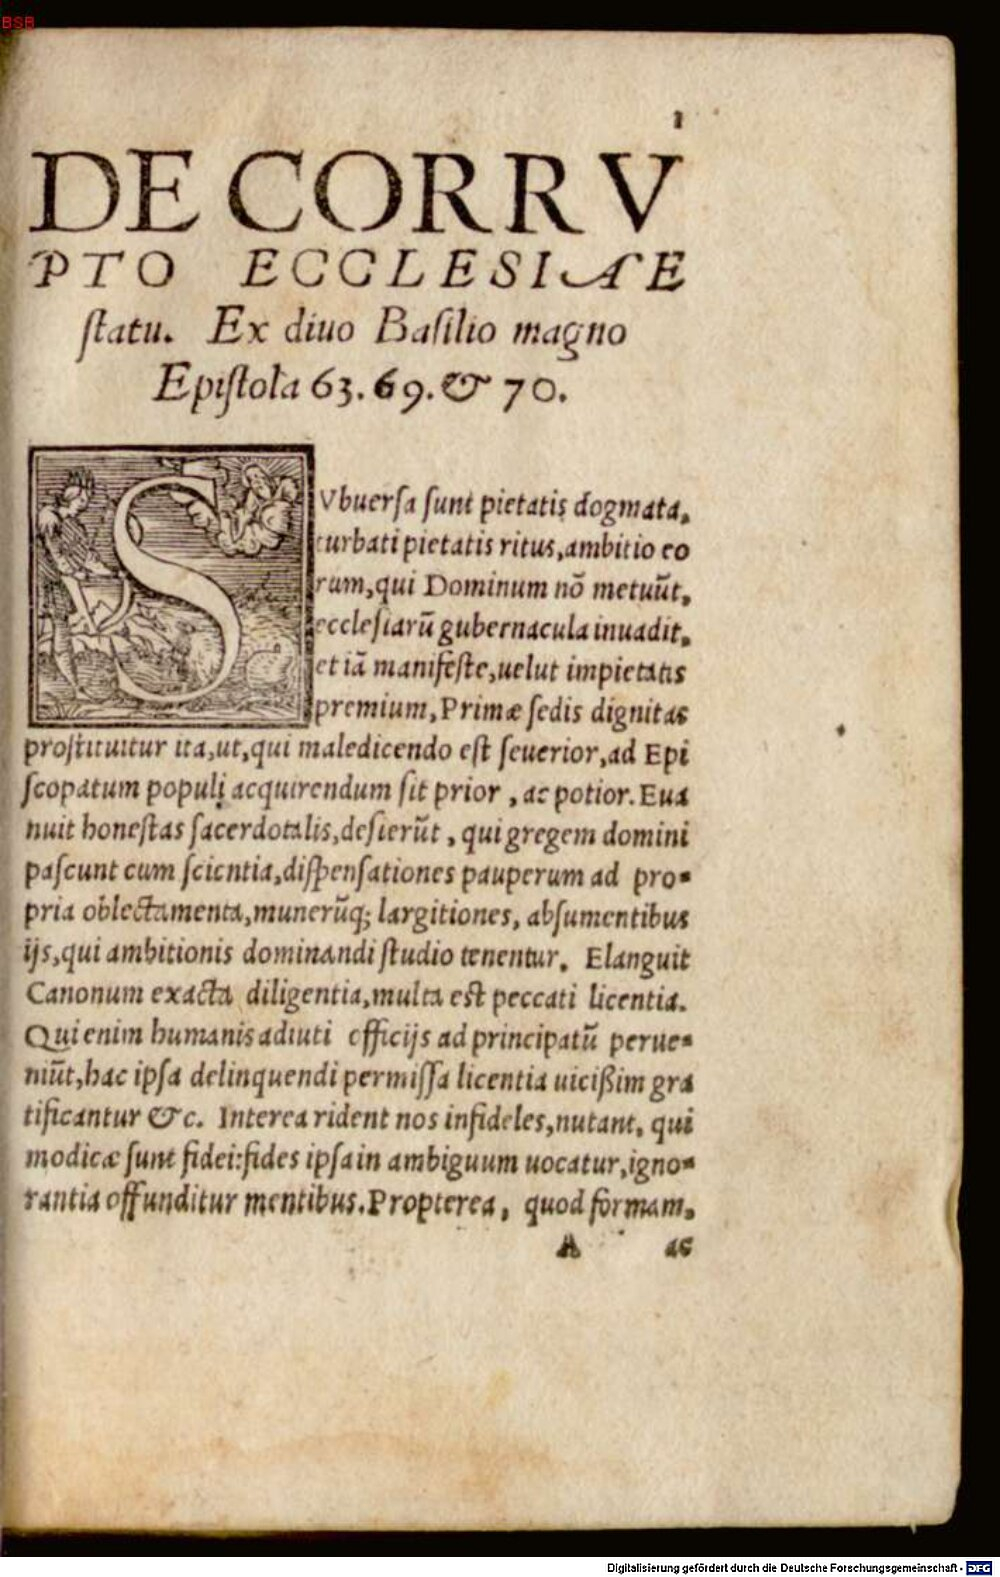 BSB
1
DE CORRV
PTO ECCLESIAE
ſtatu. Ex diuo Baſilio magno
Epiſtola 63. 69. & 70.
SVbuerſa ſunt pietatis dogmata,
turbati pietatis ritus, ambitio eo
rum, qui Dominum nō metuūt,
eccleſiarū gubernacula inuadit,
et iā manifeſte, uelut impietatis
premium, Primæ ſedis dignitas
proſtituitur ita, ut, qui maledicendo eſt ſeuerior, ad Epi
ſcopatum populi acquirendum ſit prior, ac potior. Eua
nuit honeſtas ſacerdotalis, deſierūt, qui gregem domini
paſcunt cum ſcientia, diſpenſationes pauperum ad pro-
pria oblectamenta, munerūq; largitiones, abſumentibus
ijs, qui ambitionis dominandi ſtudio tenentur. Elanguit
Canonum exacta diligentia, multa eſt peccati licentia.
Qui enim humanis adiuti officijs ad principatū perue-
niūt, hac ipſa delinquendi permiſſa licentia uiciſſim gra
tificantur &c. Interea rident nos infideles, nutant, qui
modicæ ſunt fidei: fides ipſa in ambiguum uocatur, igno-
rantia offunditur mentibus. Propterea, quod formam,
A ac
Digitalisierung gefördert durch die Deutsche Forschungsgemeinschaft - DFG